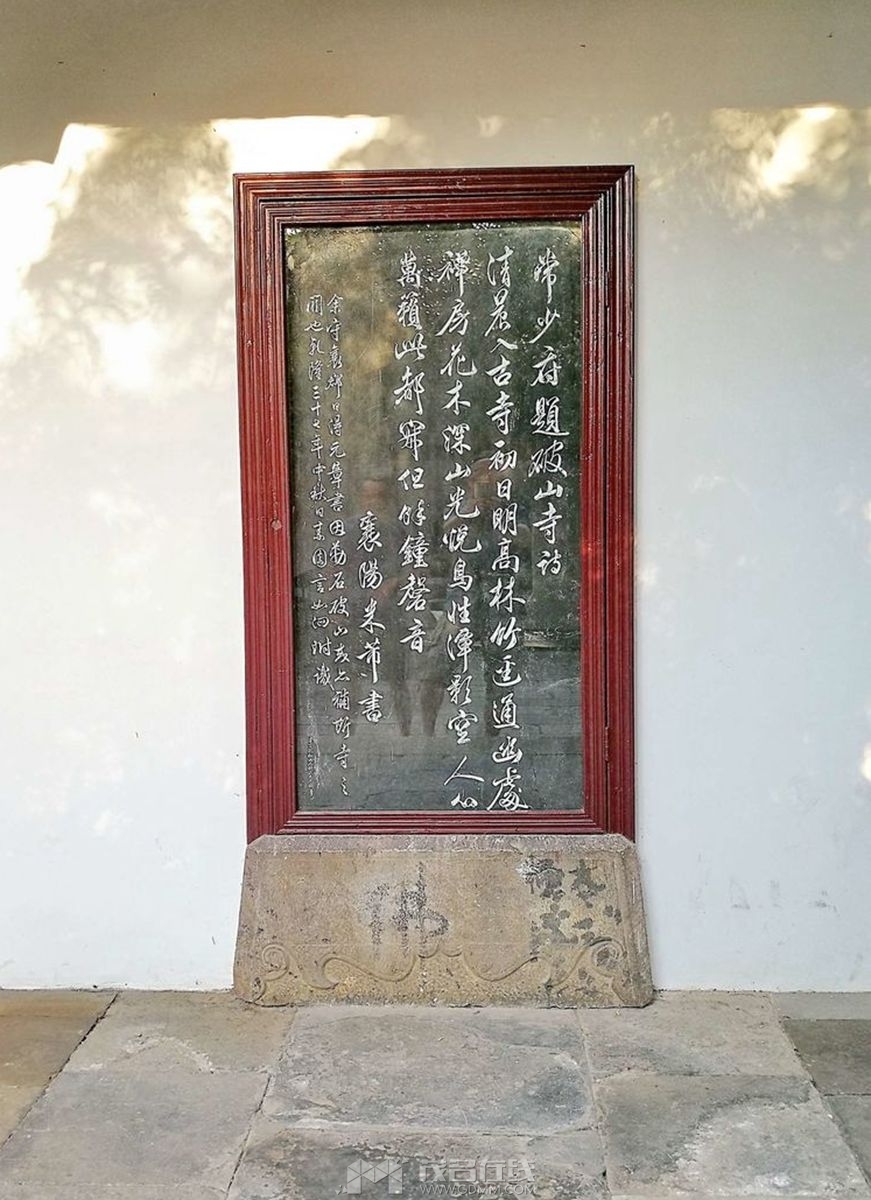 常少府題破山寺詩
清晨入古寺初日明高林竹逕通幽處
禪房花木深山光悅鳥性潭影空人心
萬籟此都寂但餘鐘磬音
襄陽米芾書
余守襄鄖日得元章書因勒石破山補斯寺之
闕也乾隆三十七年中秋日素園言如泗附識
佛
茂名在线
WWW.GDMM.COM